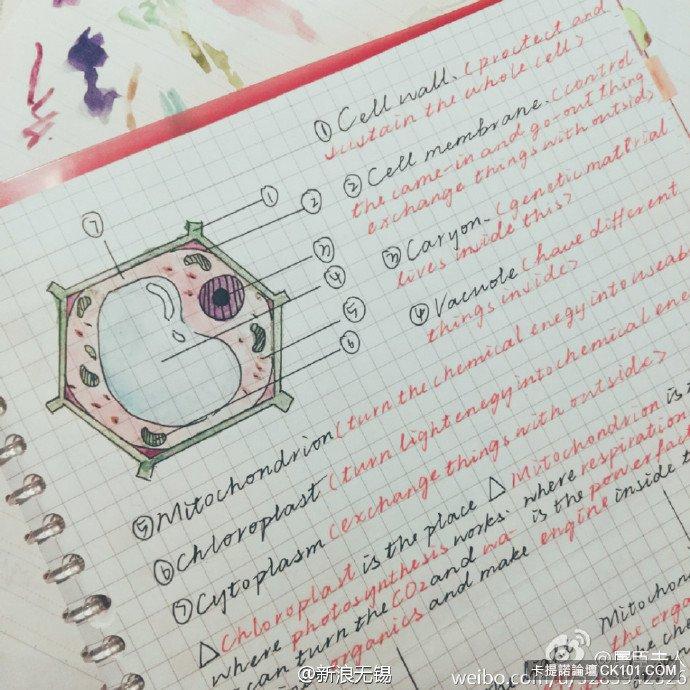 ① Cell wall. (proctect and
sustain the whole cell)
② Cell membrane. (control
the came-in and go-out thing
exchange things with outside)
③ Caryon. (genetic mattrial
lives inside this)
④ Vacuole (have different
things inside)
⑤ Mitochondrion (turn the chemical enegy into useab
⑥ Chloroplast (turn light enegy into chemical ene
⑦ Cytoplasm (exchange things with outside)
△ Chloroplast is the place
where photosynthesis works.
can turn the CO2 and wa-
organics and make
△ Mitochondrion is
where respiration
is the powerfact
engine inside t
Mitochond
the orga
che
① ② ③ ④ ⑤ ⑥ ⑦
@新浪无锡
卡提諾論壇CK101.COM